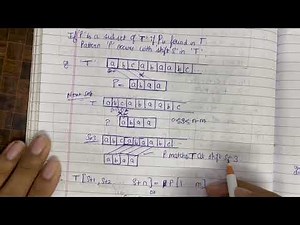 If P is a subset of T if P is found in T
Pattern P occurs with shift S in 'T'.
T a b c a b a a b c
P= a b a a
Next step
T a b c a b a a b c
P a b a a
S=3
a b c a b a a b c
a b a a
P matches T at shift S=3
T [S+1, S+2 S+m] = P [1 m]